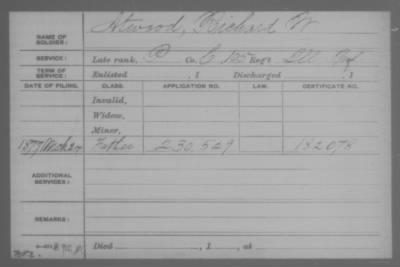 Atwood, Richard W
NAME OF SOLDIER:
SERVICE: Late rank, P Co. C, 125 Reg't Ill Inf
TERM OF SERVICE: Enlisted , 1 Discharged , 1
DATE OF FILING. CLASS. APPLICATION NO. LAW. CERTIFICATE NO.
Invalid,
Widow,
Minor,
1877 Mch Father 230.529 182078
ADDITIONAL SERVICES:
REMARKS:
Died , 1 , at